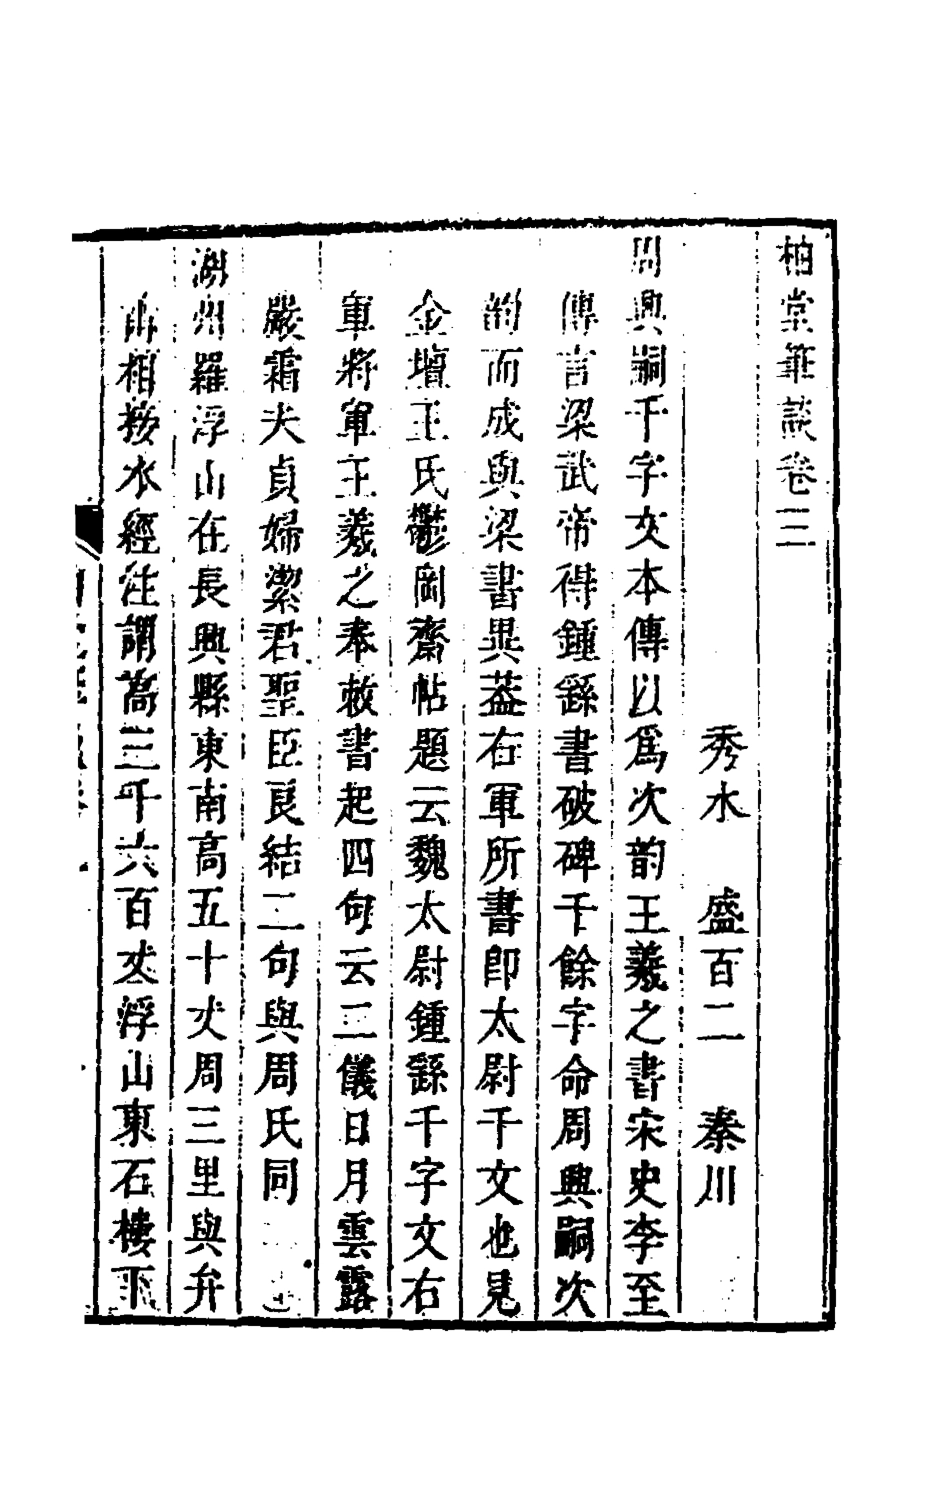 柚堂筆談卷三
秀水　盛百二　秦川
周興嗣千字文本傳以爲次韵王羲之書宋史李至
傳言梁武帝得鍾繇書破碑千餘字命周興嗣次
韵而成與梁書異葢右軍所書即太尉千文也見
金壇王氏鬱岡齋帖題云魏太尉鍾繇千字文右
軍將軍王羲之奉敕書起四句云二儀日月雲露
嚴霜夫貞婦潔君聖臣良結二句與周氏同
湖州羅浮山在長興縣東南高五十丈周三里與弁
山相接水經注謂高三千六百丈浮山東石樓下